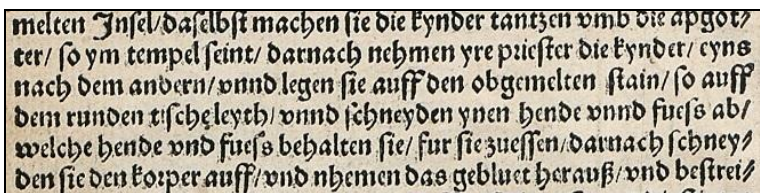 melten Jnsel/daselbst machen sie die kynder tantzen vmb die apgot⸗
ter/ so ym tempel seint/ darnach nehmen yre priester die kynder/ eyns
nach dem andern/vnnd legen sie auff den obgemelten stain/ so auff
dem runden tische leyth/ vnnd schneyden ynen hende vnnd fuess ab/
welche hende vnd fuess behalten sie/ fur sie zuessen/darnach schney⸗
den sie den korper auff/vnd nhemen das gebluet herauß/vnd bestrei⸗